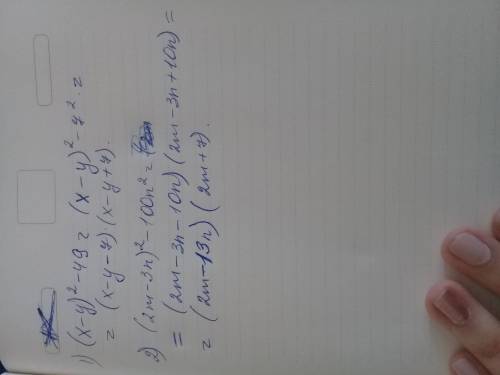 1) (x-y)²-49 = (x-y)²-7² =
= (x-y-7)·(x-y+7).
2) (2m-3n)²-100n² =
= (2m-3n-10n)·(2m-3n+10n) =
= (2m-13n)(2m+7).